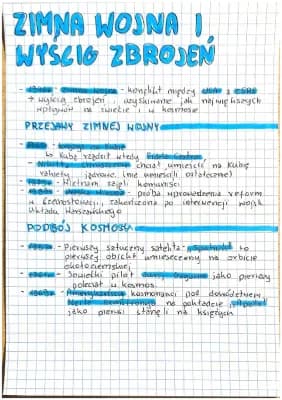 ZIMNA WOJNA I
WYŚCIG ZBROJEŃ
- Zimna wojna - konflikt między USA a ZSRR
→ wyścig zbrojeń, uzyskiwanie jak największych
wpływów na świecie i w kosmosie
PRZEJAWY ZIMNEJ WOJNY
na Kubie
↳ Kubą rządził wtedy Fidel Castro
- Nikita chciał umieścić na Kubie
rakiety jądrowe (nie umieścili ostatecznie)
- Wietnam
- próba wprowadzenia reform
w Czechosłowacji, zakończona po interwencji wojsk
Układu Warszawskiego
PODBÓJ KOSMOSU
- Pierwszy sztuczny satelita - "Sputnik" to
pierwszy obiekt umieszczony na orbicie
okołoziemskiej
- Radziecki pilot Jurij Gagarin jako pierwszy
poleciał w kosmos
- Amerykańscy kosmonauci pod dowództwem
Armstronga na pokładzie
jako pierwsi stanęli na księżycu